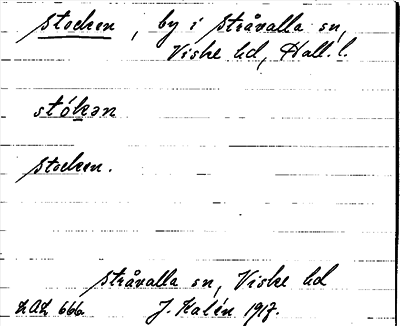 Stocken, by i Stråvalla sn,
Viske hd, Hall. l.
stókən
Stocken.
Stråvalla sn, Viske hd
LAL 666 J. Kalén 1917.